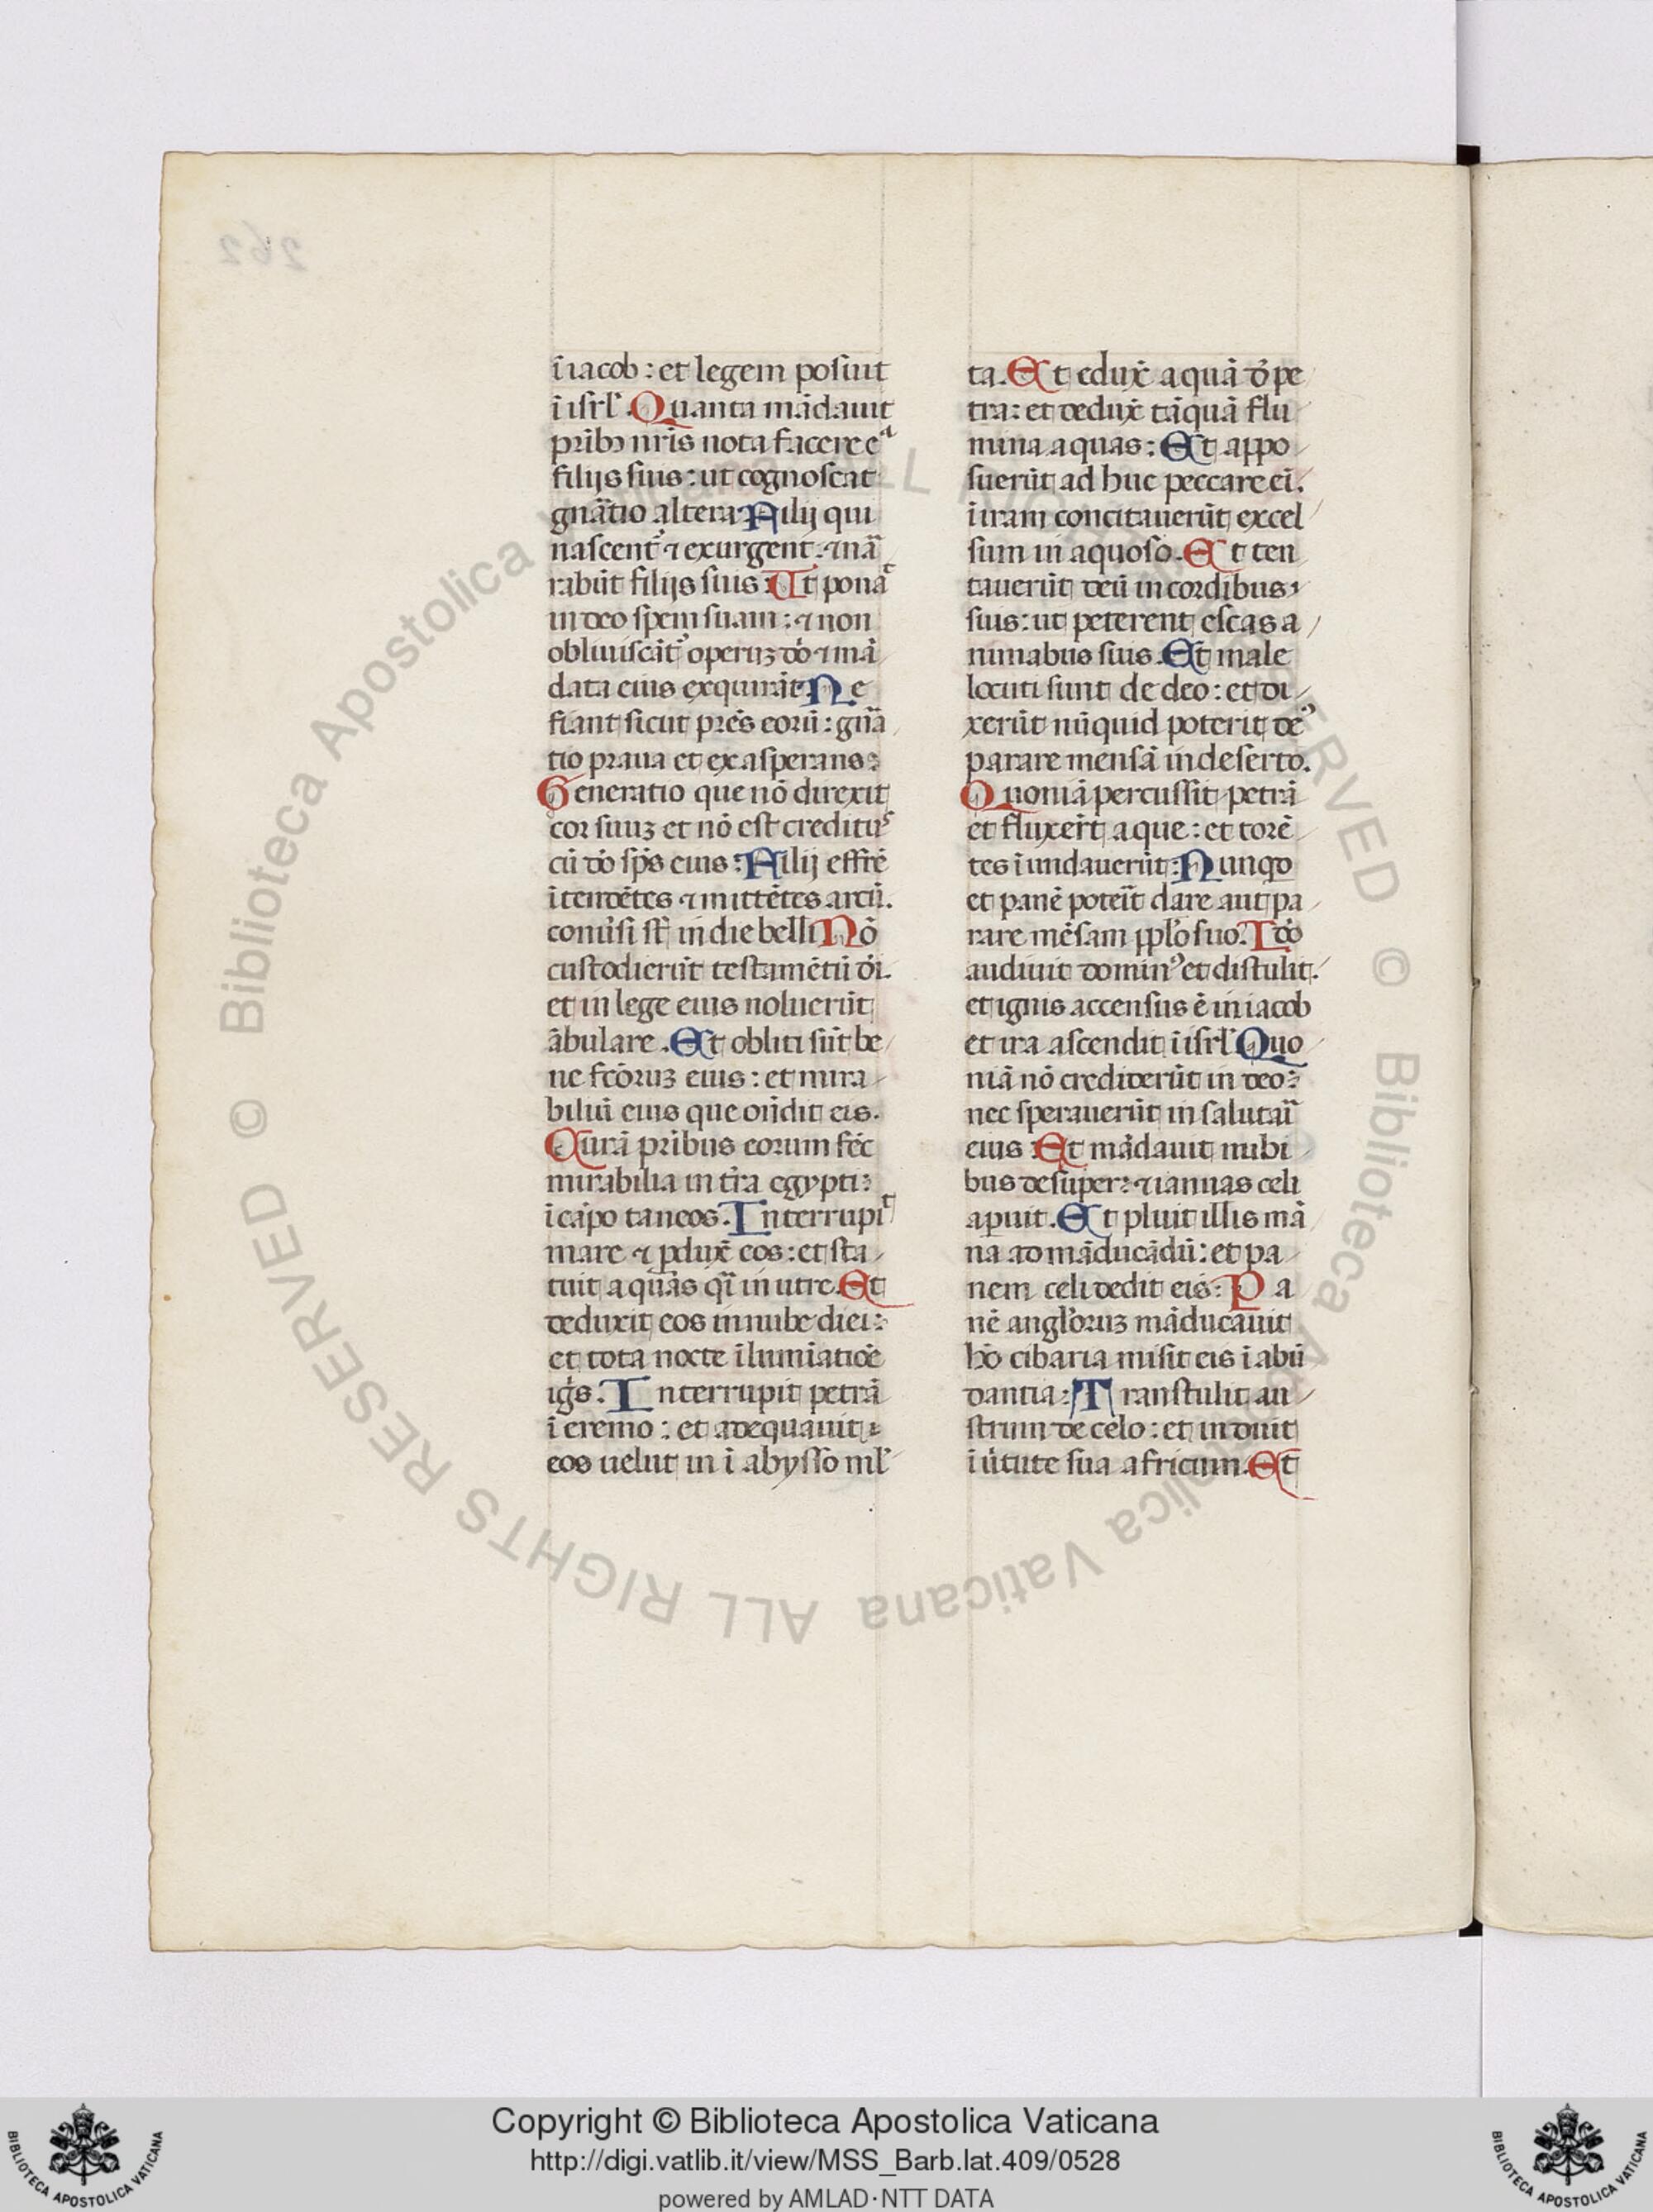 262
ī iacob : et legem posuit
ī isrl̄ . Quanta mādauit
prib3 nr̄is nota facere eª
filijs suis : ut cognoscat
gn̄atio altera Filij qui
nascent̄ ⁊ exurgent : ⁊ nā
rabūt filijs suis : Ut ponāt
in deo spem suam : ⁊ non
obliuiscāt̉ operu3 dō ⁊ mā
data eius exquirāt Ne
fiant sicut pr̄es eorū : gn̄a
tio praua et exasperans :
Generatio que nō direxit
cor suu3 et nō est creditus
cū dō sp̄s eius : Filij effrē
ītendētes ⁊ mittētes arcū .
conūsi st̄ in die belli Nō
custodierūt testamētū dī .
et in lege eius noluerūt
ābulare . Et obliti sūt be
ne fcōru3 eius : et mira
biliū eius que on̄dit eis .
Corā pribus eorum fēc
mirabilia in tr̄a egypti :
ī cāpo taneos . Interrupit
mare ⁊ ꝑdux̄ eos : et sta
tuit aquās qī in utre . Et
deduxit eos in nube diei :
et tota nocte ī lumīatiōe
iḡs . Interrupit petrā
ī eremo : et adequauit
eos uelut in ī abysso ml̄
ta . Et edux̄ aquā dē pe
tra : et dedux̄ tāquā flu
mina aquas : Et appo
suerūt ad huc peccare ei .
ī iram concitauerūt excel
sum in aquoso . Et ten
tauerūt deū in cordibus
suis : ut peterent escas a
nimabus suis . Et male
locuti sunt de deo : et di
xerūt nūquid poterit deꝰ
parare mensā in deserto .
Quoniā percussit petrā
et fluxer̄t aque : et torē
tes īundauerūt : Nunqd
et panē poterit dare aut pa
rare mēsam pplo suo ? Idō
audiuit dominꝰ et distulit .
et ignis accensus ē in iacob
et ira ascendit ī isrl̄ Quo
niā nō crediderūt in deo :
nec sperauerūt in salutarī
eius : Et mādauit nubi
bus desuper : ⁊ ianuas celi
apuit . Et pluit illis mā
na ad māducādū : et pa
nem celi dedit eis : Pa
nē anglo̅ru3 māducauit
hō cibaria misit eis ī abū
dantia : Transtulit au
strum de celo : et induit
ī ūtute sua africum . Et
© Biblioteca Apostolica Vaticana ALL RIGHTS RESERVED © Biblioteca Apostolica Vaticana ALL RIGHTS RESERVED
BIBLIOTECA APOSTOLICA VATICANA
Copyright © Biblioteca Apostolica Vaticana
http://digi.vatlib.it/view/MSS_Barb.lat.409/0528
powered by AMLAD·NTT DATA
BIBLIOTECA APOSTOLICA VATICANA